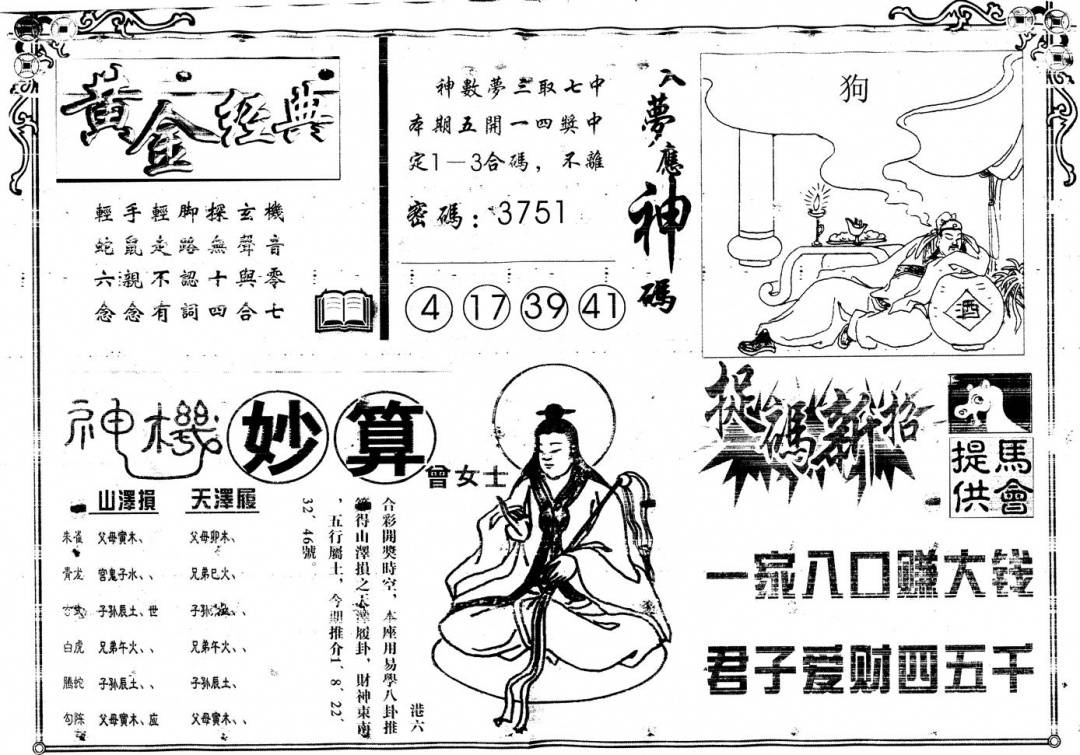 黃金經典
輕手輕脚探玄機
蛇鼠走路無聲音
六親不認十與零
念念有詞四合七
神數夢三取七中
本期五開一四獎中
定1—3合碼，不離
密碼：3751
4 17 39 41
入夢應神碼
狗
酒
神機妙算
曾女士
山澤損 天澤履
朱雀 父母寅木、 父母卯木、
青龙 官鬼子水、、 兄弟巳火、
子孙辰土、世 子孙
白虎 兄弟午火、、 兄弟午火、
螣蛇 子孙辰土、、 子孙辰土、
勾陈 父母寅木、应 父母寅木、、
港六
合彩開獎時空，本座用易學八卦推
算得山澤損之天澤履卦，財神東南
，五行屬土，今期推介1、8、22、
32、46號。
捉碼新招
馬會提供
一家入口赚大钱
君子爱财四五千